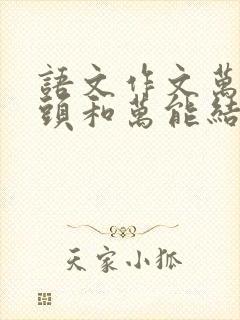 語文作文萬
頭和萬能結
天家小狐